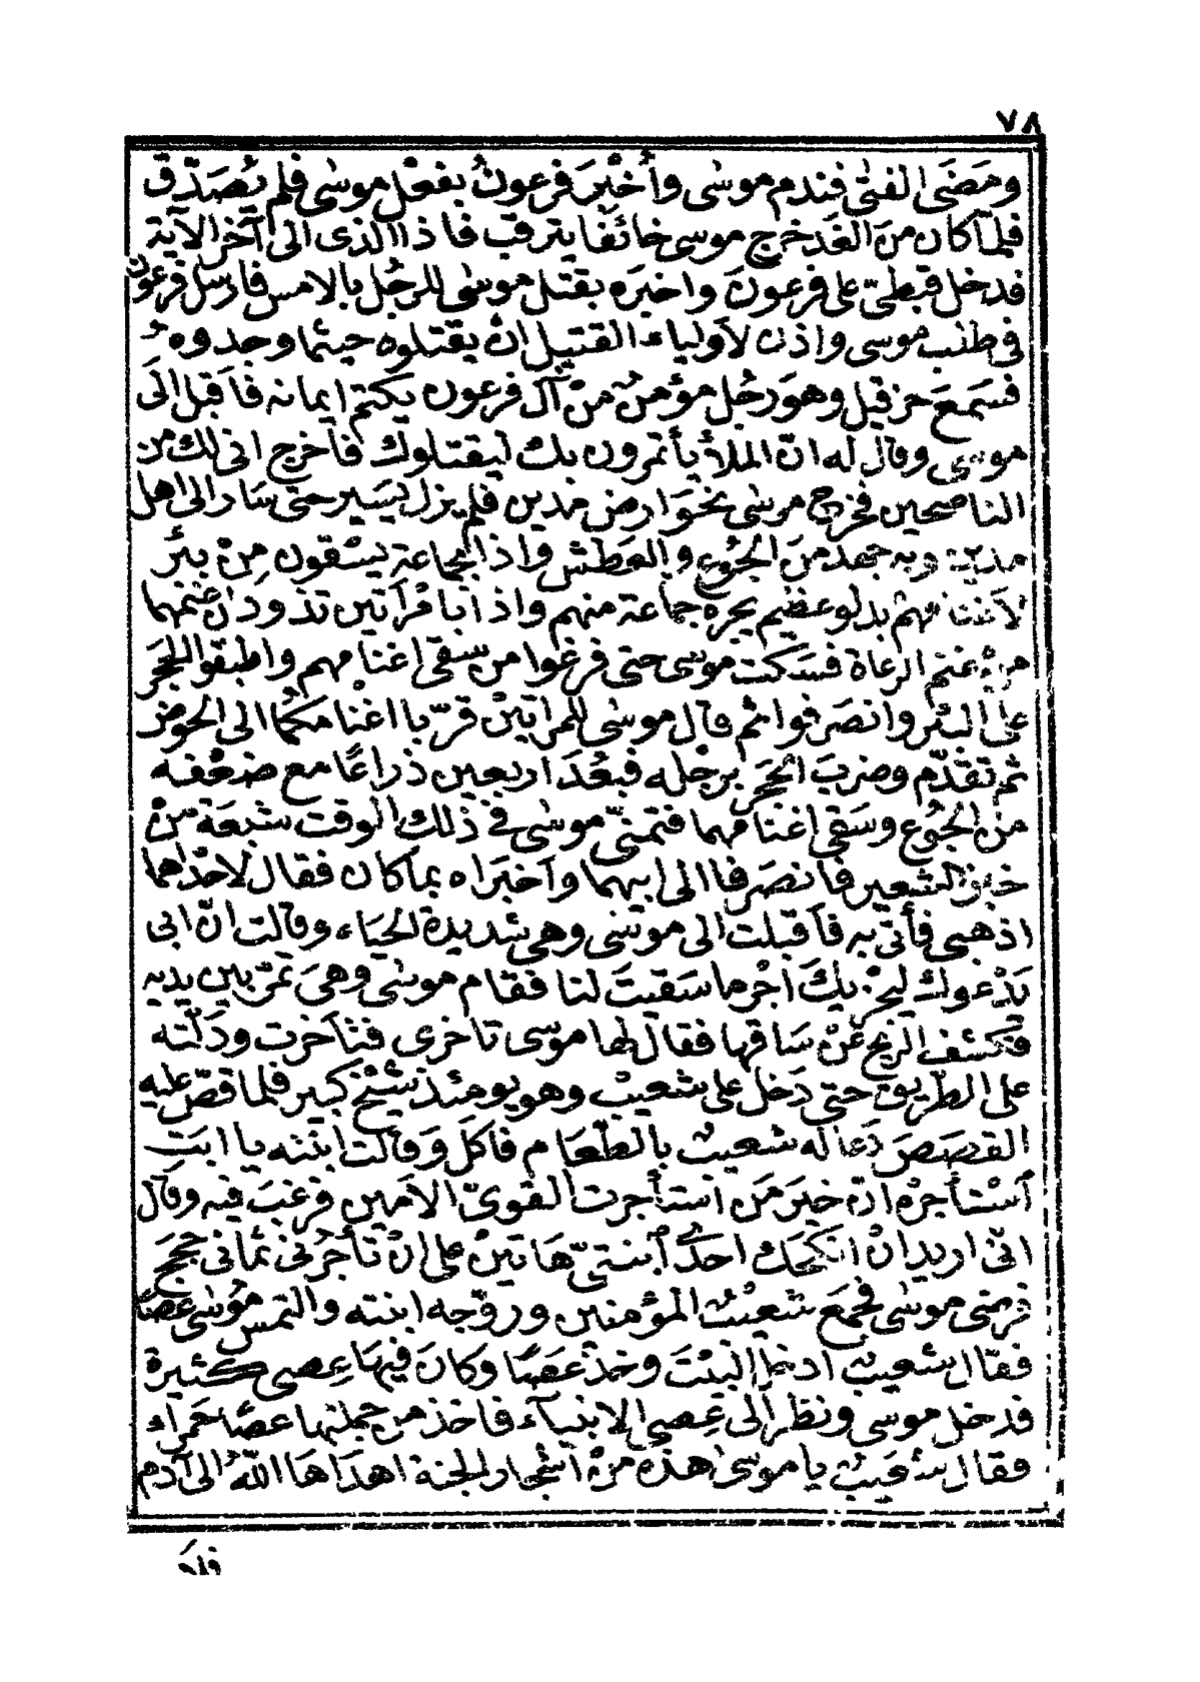 ٧٨
ومَضَى الفتى فندم موسى وأخْبَرَ فرعونُ بفعْل موسى فلم يُصَدّق
فلمّا كان من الغَد خرج موسى خائفًا يترقب فاذا الذى الى آخر الآية
فدخل قبطىّ على فرعونَ واخبَره بقتل موسى للرجُل بالامس فارسَل فرعون
فى طلب موسى واذن لاَولياء القتيل انْ يقتلوه حيثما وجدوهُ
فسَمعَ حزقيل وهوَ رجُل مؤمنٌ منْ آل فرعون يكتم ايمانه فاَقبل الَى
موسى وقال له انّ الملأ يأتمرون بك ليقتلوك فاَخرج انى لك من
الناصحين فخرج موسى نحوَ ارض مدين فلم يزل يسَير حتى سَار الى اهل
مدين وبه جهد منَ الجُوع والعطش واذا بجماعة يسْقون مِنْ بئر
لاَغنامهم بدلو عظيم يجره جماعة منهم واذا بامْرأتين تذودان غنمهما
منْ غنم الرعاة فسَكت موسى حتى فرغوا من سقى اغنامهم واطبقوا الحجَر
على البئر وانصَرفوا ثم قال موسى للمرأتيْن قرّبا اغنامكما الى الحوض
ثم تقدّم وضربَ الحجَر برجْله فبعُدَ اربعين ذراعًا مع ضعْفه
منْ الجُوع وسَقى اغنامهما فتمنىّ موسى فى ذلك الوقت شبعَة منْ
خبز الشعير فانصَرفا الى ابيهما واَخبَراه بما كان فقال لاحدَاهما
اذهبى فأتى به فاَقبلت الى موسَى وهى شديدة الحيَاء وقالت انّ ابى
يَدْعوك ليجْزيكَ اجْر ما سَقيتَ لنا فقام موسى وهىَ تمرّ بين يديه
فكشف الريح عَنْ سَاقها فقال لها موسى تاخرى فتأخرت ودَلّته
على الطريق حتى دَخل على شعيبْ وهو يومئذ شيْخ كبير فلما قصّ عليه
القصَصَ دَعا له شعيبٌ بالطعَام فاكَل وَقالت ابنَته يا ابَتِ
أسْتأجرْه انّ خيَر مَن اسْتأجرت القوىّ الاَمين فرغبَ فيه وقال
انىّ اريد انْ انكحَك احدَى ابْنتىّ هَاتيْن على انْ تأجُرَنى ثمانى حجَج
فرضى موسى فجمَعَ شعيْبُ المؤمنين وزوّجه ابنته والتمس مُوسى عَصًا
فقال شعيبٌ ادخل البيْتَ وخذ عَصًا وكانَ فيهَا عِصى كثيرة
فدخل موسى ونظر الى عِصى الانبيآء فاخذ من جملتها عصًا حَمراء
فقال شعَيبٌ يا موسى هذه منْ اشجار الجنة اهدَاهَا اللّهُ الى آدم